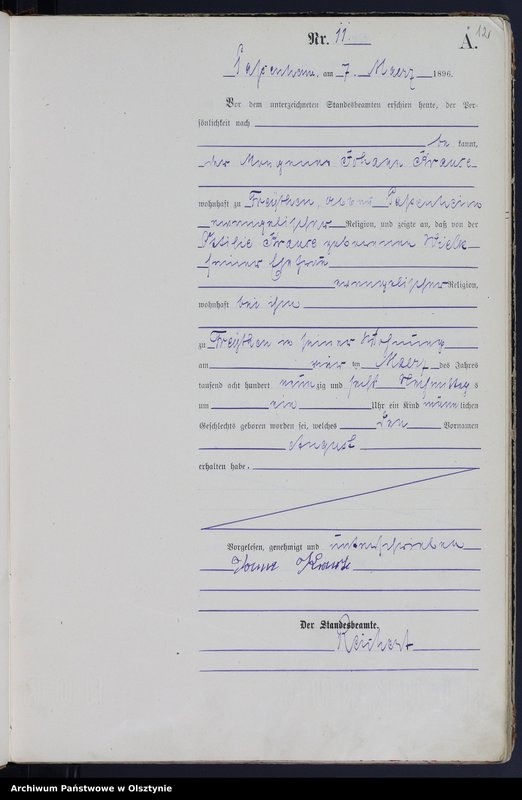 Nr. 11
A.
121
am 7. Maerz 1896.
Vor dem unterzeichneten Standesbeamten erschien heute, der Per-
sönlichkeit nach
be kannt,
der Johann Krause
wohnhaft zu Freythen,
evangelischer Religion, und zeigte an, daß von der
Krause geborenen
seiner Ehefrau
evangelischer Religion,
wohnhaft bei ihm
zu Freythen in seiner Wohnung
am vier ten Maerz des Jahres
tausend acht hundert neun zig und sechs Nachmittag s
um ein Uhr ein Kind männ lichen
Geschlechts geboren worden sei, welches den Vornamen
August
erhalten habe.
Vorgelesen, genehmigt und unterschrieben
Der Standesbeamte.
Reichert
Archiwum Państwowe w Olsztynie